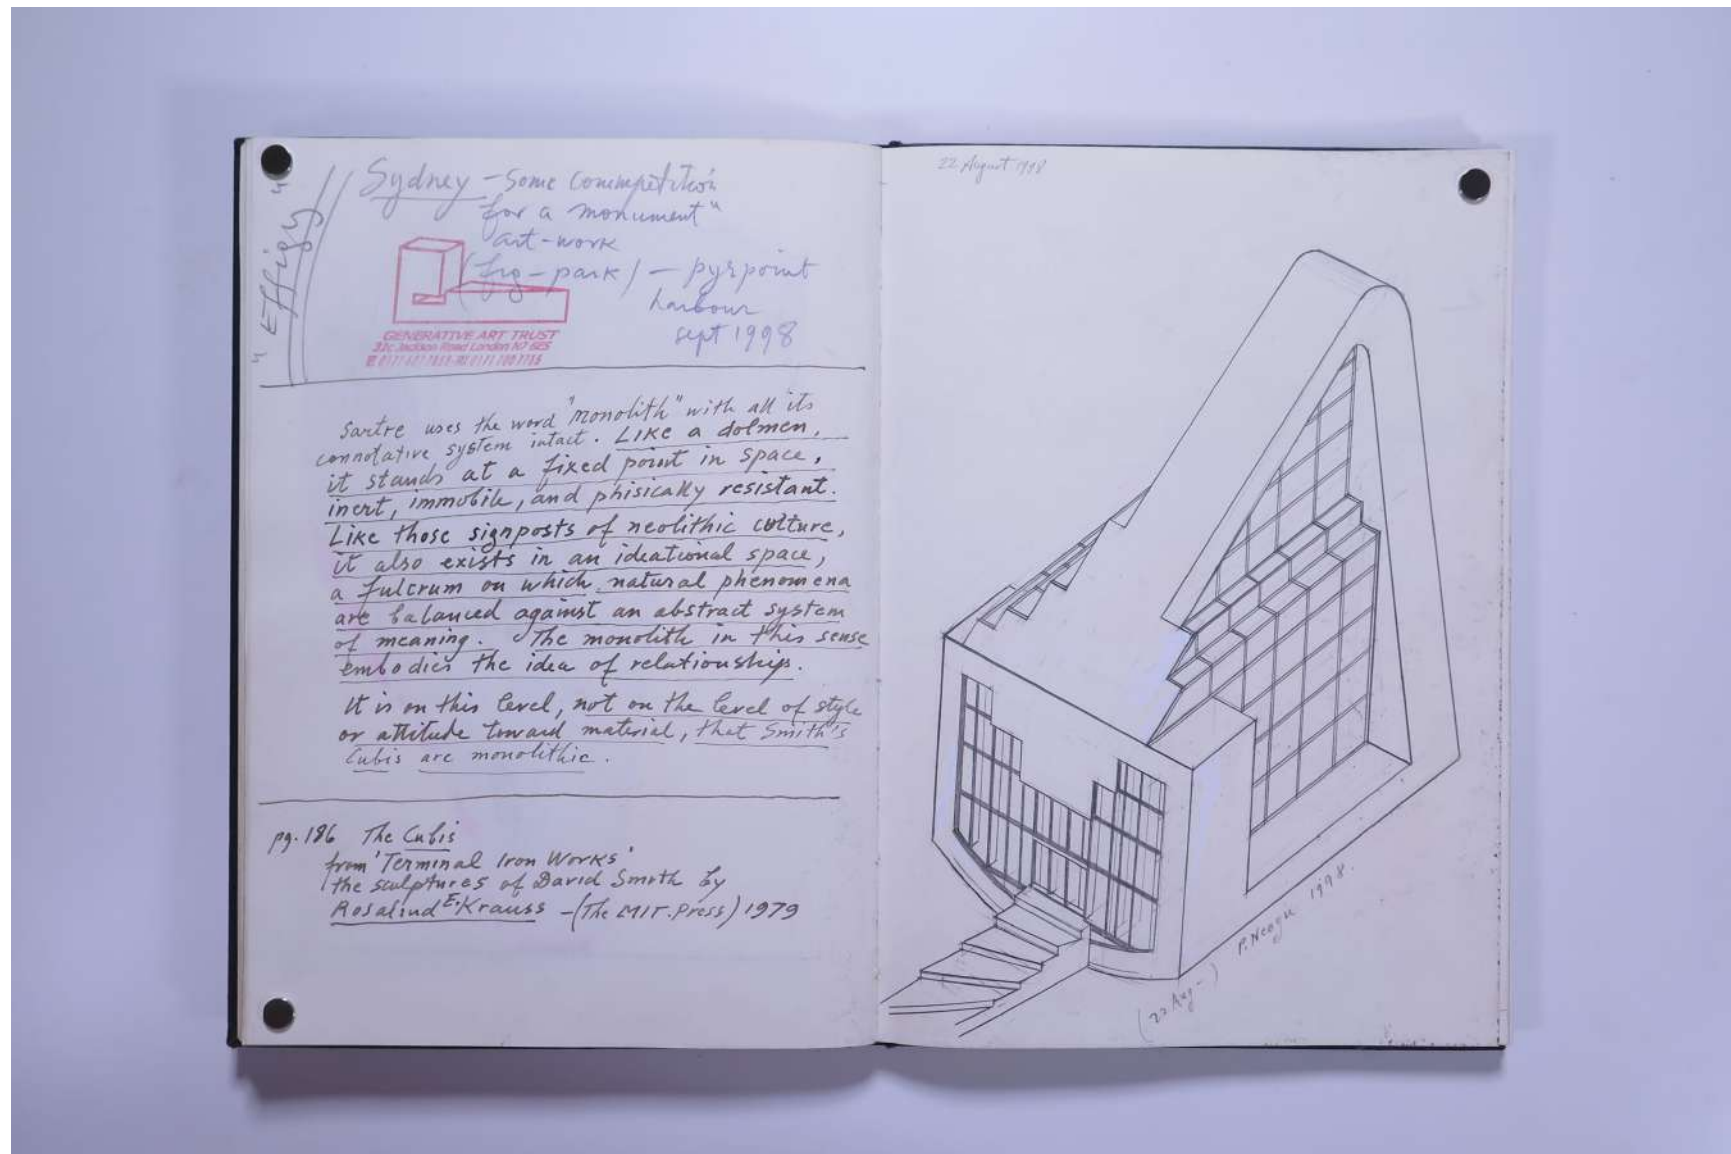 "Effigy"
Sydney - Some commpetition
for a monument"
art-work
(fig-park) - pyrpoint
harbour
sept 1998
GENERATIVE ART TRUST
32c Jackson Road London N7 6ES
Sartre uses the word "monolith" with all its
connotative system intact. Like a dolmen,
it stands at a fixed point in space,
inert, immobile, and phisically resistant.
Like those signposts of neolithic culture,
it also exists in an ideational space,
a fulcrum on which natural phenomena
are balanced against an abstract system
of meaning. The monolith in this sense
embodies the idea of relationship.
It is on this level, not on the level of style
or attitude toward material, that Smith's
Cubis are monolithic.
pg. 186 The Cubis
from 'Terminal Iron Works'
the sculptures of David Smith by
Rosalind E. Krauss - (The MIT. Press) 1979
22 August 1998
P. Neagu 1998.
(22 Aug-)